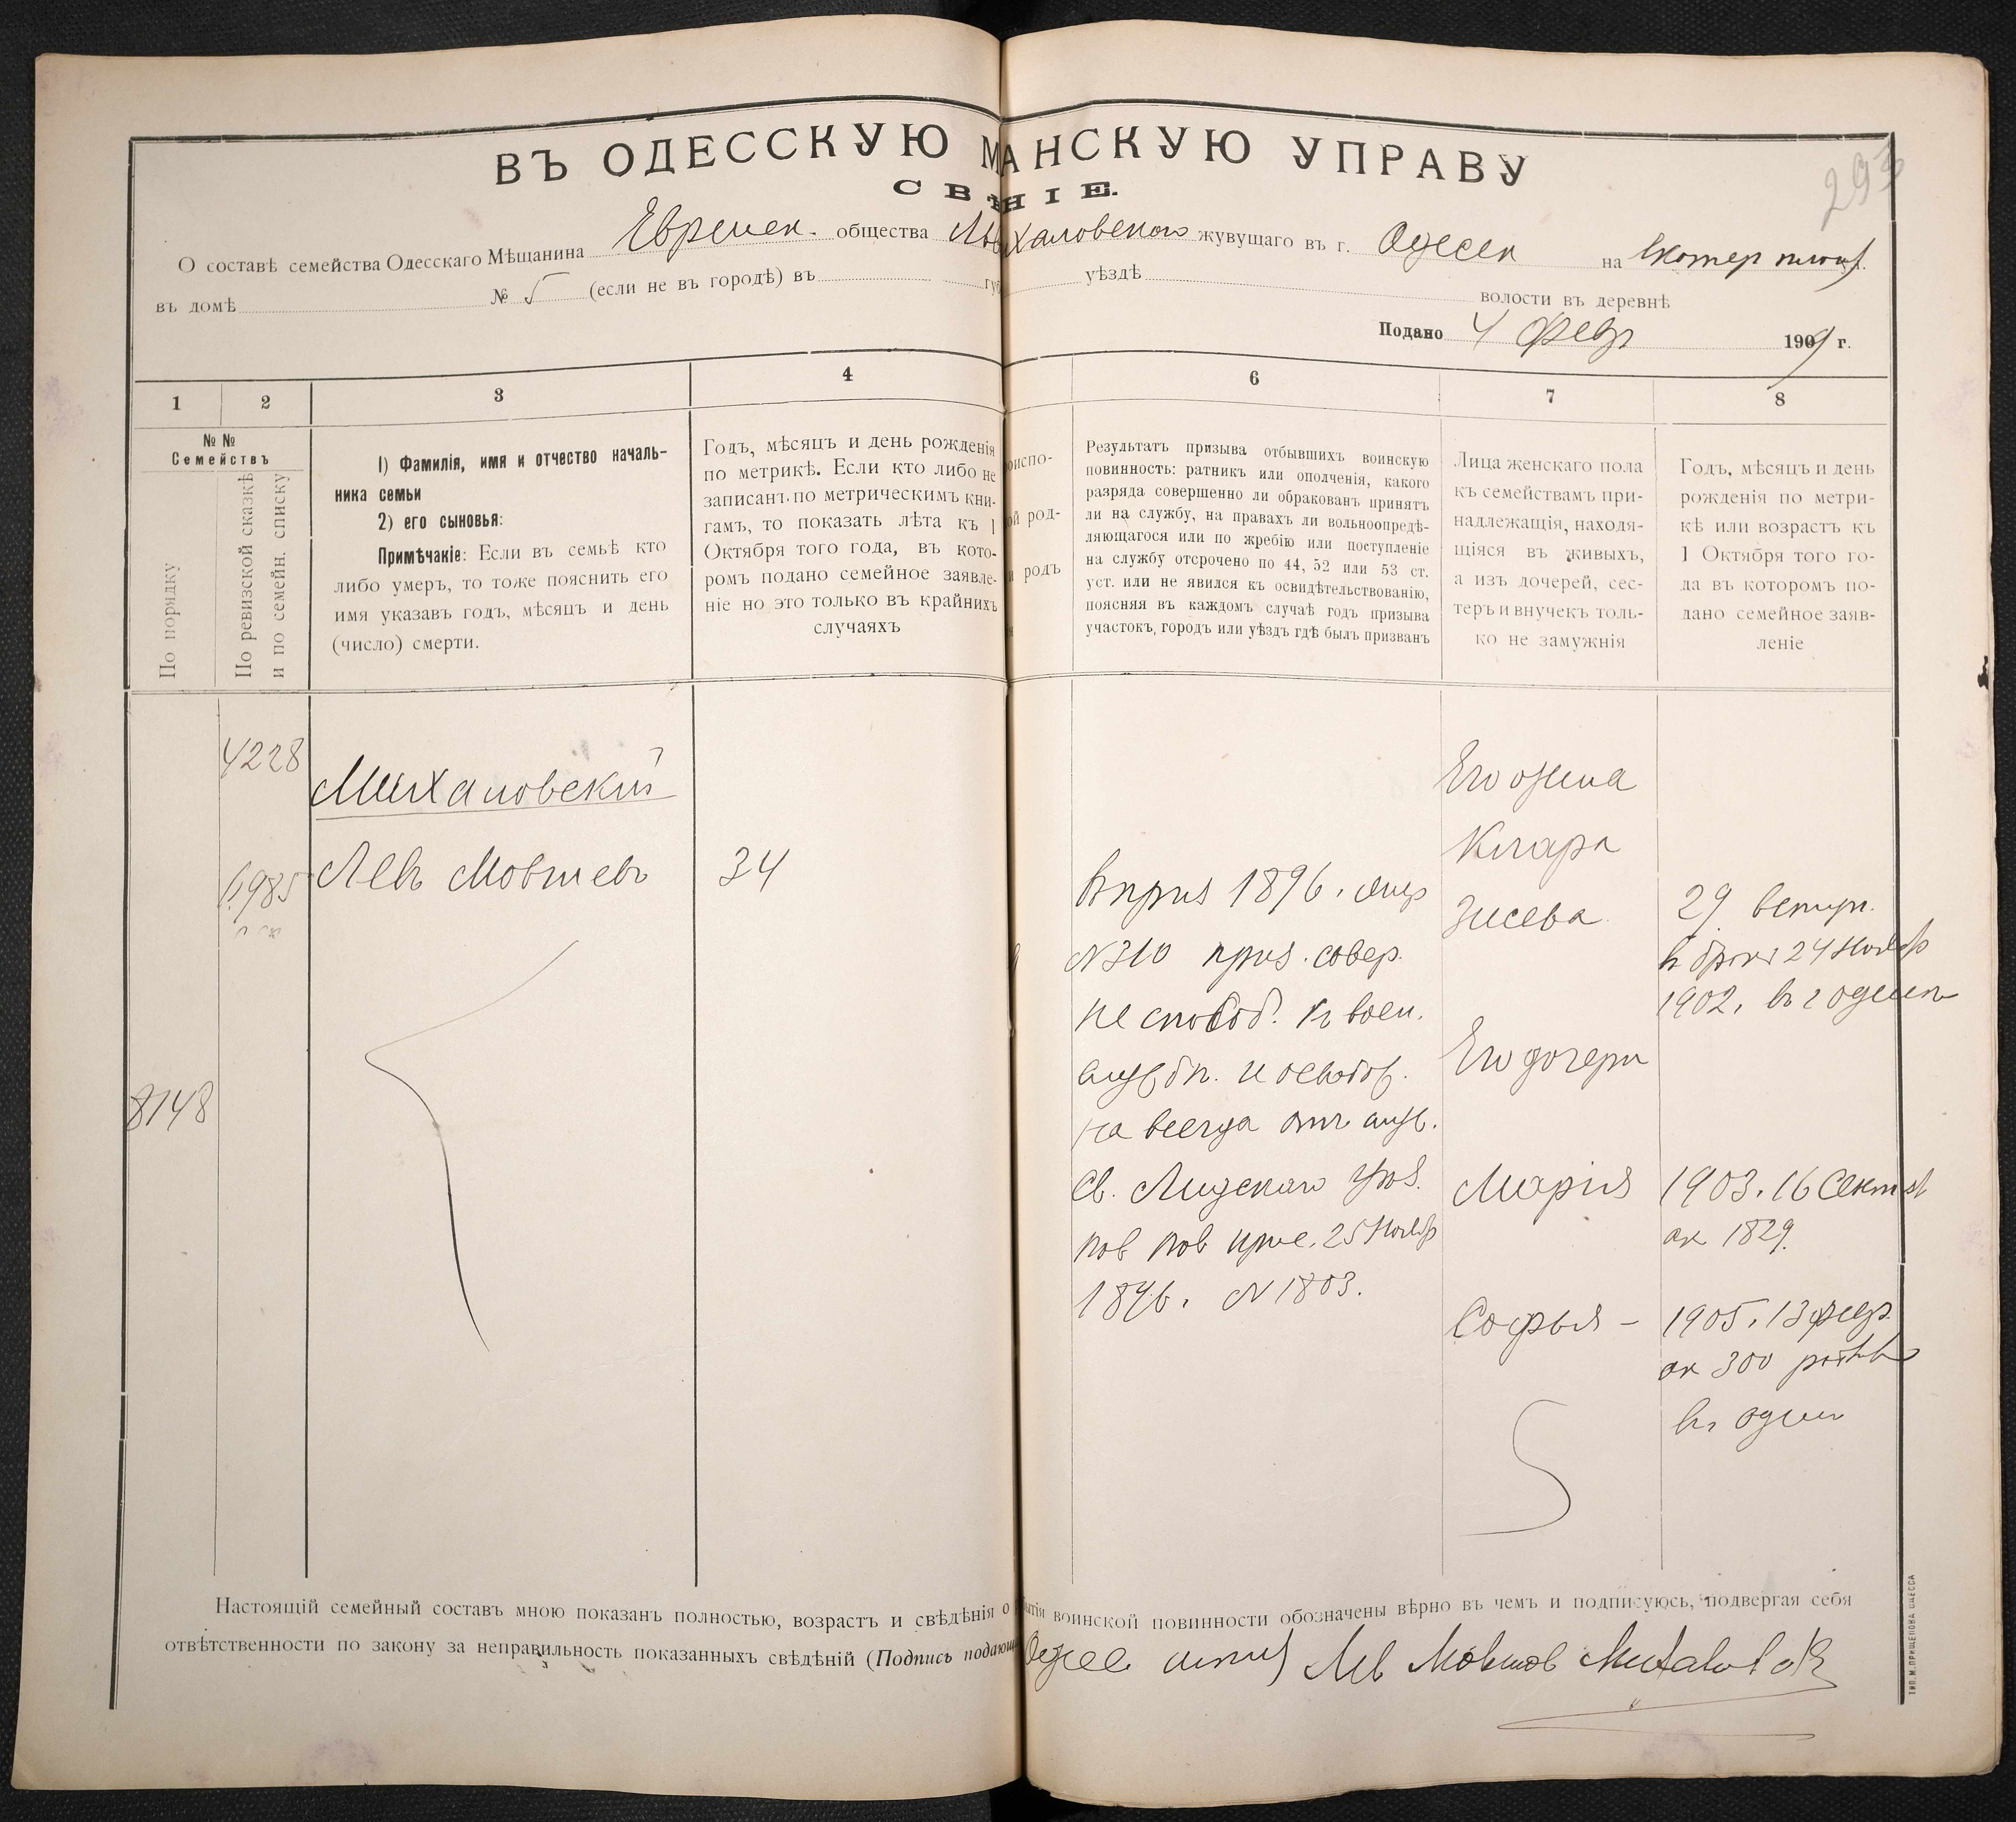 ВЪ ОДЕССКУЮ М АНСКУЮ УПРАВУ
СВѢ НІЕ.
293
О составѣ семейства Одесскаго Мѣщанина Евреиск. общества Михаловскаго жувущаго въ г. Одесси на
въ домѣ № 5 (если не въ городѣ) въ губ уѣздѣ волости въ деревнѣ
Подано 4 февр 1909 г.
1 2 3 4 6 7 8
№№
Семействъ
По порядку
По ревизской сказкѣ
и по семейн. списку
1) Фамилія, имя и отчество началь-
ника семьи
2) его сыновья:
Примѣчакіе: Если въ семьѣ кто
либо умеръ, то тоже пояснить его
имя указавъ годъ, мѣсяцъ и день
(число) смерти.
Годъ, мѣсяцъ и день рожденія
по метрикѣ. Если кто либо не
записанъ по метрическимъ кни-
гамъ, то показать лѣта къ 1
Октября того года, въ кото-
ромъ подано семейное заявле-
ніе но это только въ крайнихъ
случаяхъ
риспо-
ой род-
родъ
Результатъ призыва отбывшихъ воинскую
повинность: ратникъ или ополченія, какого
разряда совершенно ли обракованъ принятъ
ли на службу, на правахъ ли вольноопредѣ-
ляющагося или по жребію или поступленіе
на службу отсрочено по 44, 52 или 53 ст.
уст. или не явился къ освидѣтельствованію,
поясняя въ каждомъ случаѣ годъ призыва
участокъ, городъ или уѣздъ гдѣ былъ призванъ
Лица женскаго пола
къ семействамъ при-
надлежащія, находя-
щіяся въ живыхъ,
а изъ дочерей, сес-
теръ и внучекъ толь-
ко не замужнія
Годъ, мѣсяцъ и день
рожденія по метри-
кѣ или возрастъ къ
1 Октября того го-
да въ котором по-
дано семейное заяв-
леніе
4228
Михаловскій
6985
Левъ Мовшевъ
34
8148
Въ приз 1896.
№310 приз. совер.
не способ. къ воен.
службѣ. и освобож.
на всегда отъ служ.
Св. Лидскаго уѣзд.
по в пов прис. 25 Ноябр
1896. № 1803.
Его жена
Клара
Зисева
Его дочери
Марія
Софья –
29 вступ.
въ бракъ 24 Ноябр
1902. въ г Одессѣ
1903. 16 Сент
ак 1829.
1905. 13 февр.
ак 300
въ Одессѣ
Настоящій семейный составъ мною показанъ полностью, возрастъ и свѣдѣнія о бытія воинской повинности обозначены вѣрно въ чемъ и подписуюсь, подвергая себя
отвѣтственности по закону за неправильность показанныхъ свѣдѣній (Подпись подающ Лев Мовшов Михаловск
ТИП. М. ПРИЩЕПОВА ОДЕССА